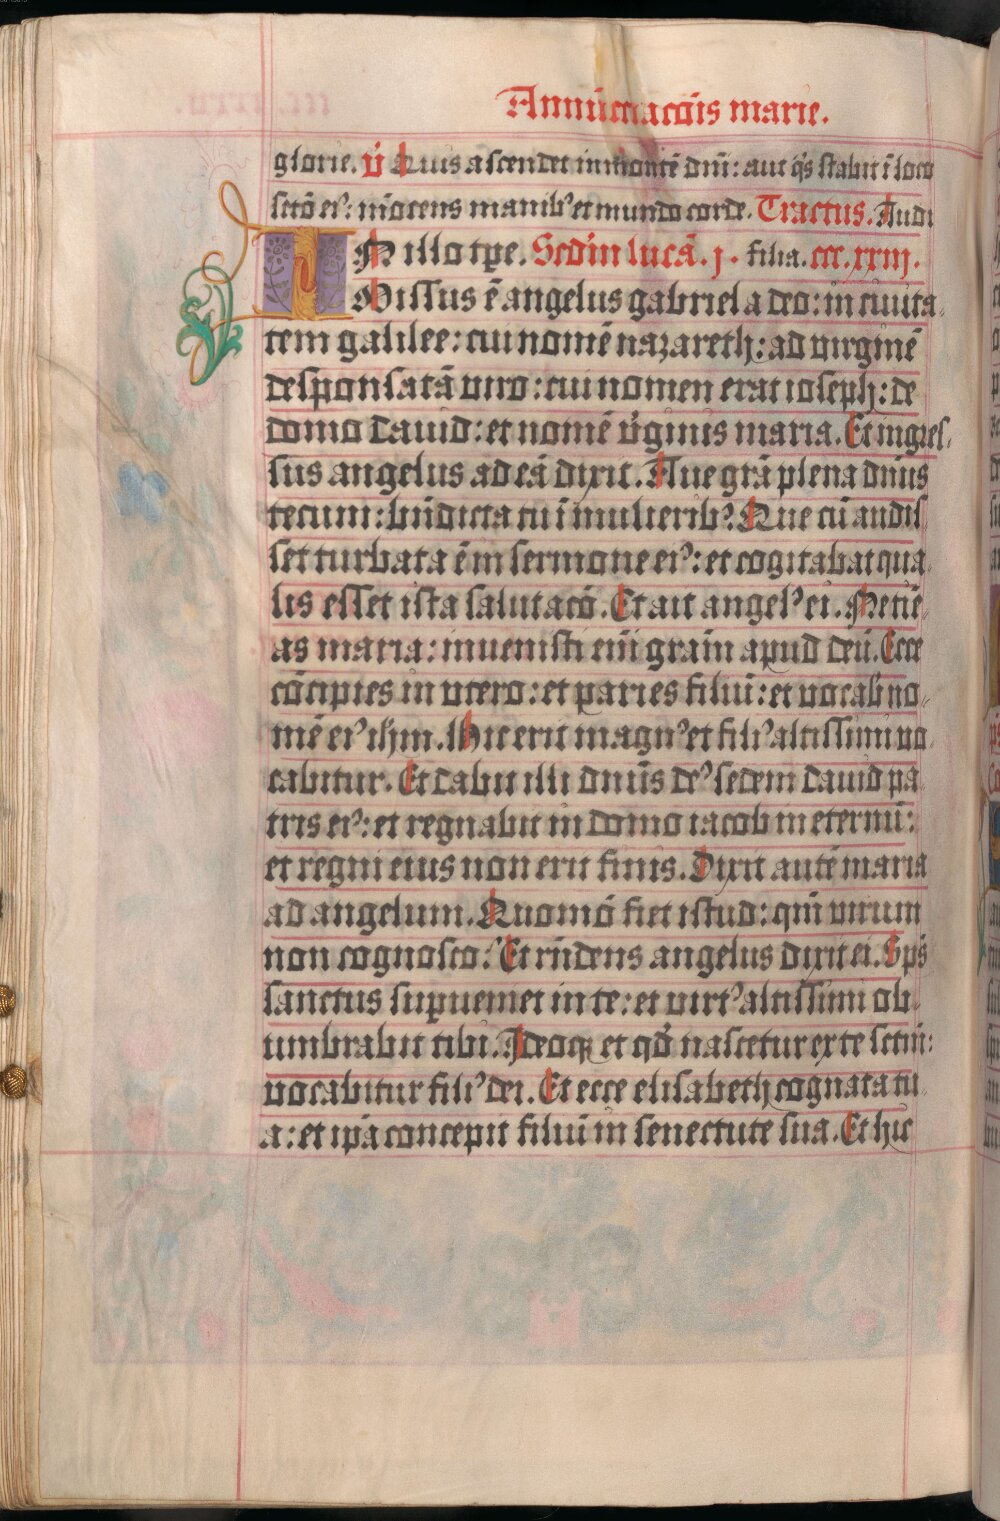 Annūctiacōis marie.
glorie. v̄ Quis ascendet in montē dn̄i: aut q̄s stabit ī loco
sctō eiꝰ: īnocens manibꝰ et mundo corde. Tractus. Audi
IN illo tp̄e. Scd̄m lucā. j. filia. ccc.xxiij.
Missus ē angelus gabriel a deo: in ciuita-
tem galilee: cui nomē nazareth: ad virginē
desponsatā viro: cui nomen erat ioseph: de
domo dauid: et nomē v̄ginis maria. Et ingres-
sus angelus ad eā dixit. Aue grā plena dn̄us
tecum: bn̄dicta tu ī mulieribꝰ. Que cū audis
set turbata ē in sermone eiꝰ: et cogitabat qua-
lis esset ista salutacō. Et ait angelꝰ ei. Ne tīe-
as maria: inuenisti em̄ gr̄am apud deū. Ecce
cōcipies in vtero: et paries filiū: et vocab̄ no-
mē eiꝰ ih̄m. Hic erit magnꝰ et filiꝰ altissimi vo-
cabitur. Et dabit illi dn̄us deꝰ sedem dauid pa-
tris eiꝰ: et regnabit in domo iacob in eternū:
et regni eius non erit finis. Dixit autē maria
ad angelum. Quomō fiet istud: qm̄ virum
non cognosco? Et rn̄dens angelus dixit ei. Sp̄s
sanctus supueniet in te: et virtꝰ altissimi ob-
umbrabit tibi. Ideoqꝫ et qd̄ nascetur ex te sctm̄:
vocabitur filiꝰ dei. Et ecce elisabeth cognata tu-
a: et ip̄a concepit filiū in senectute sua. Et hic